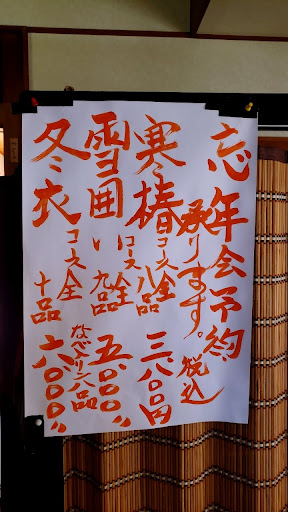 忘年会予約
承ります。税込
寒椿 コース全八品 三八〇〇円
雪囲い コース全九品 五、〇〇〇〃
冬衣 コース全十品 六、〇〇〇〃